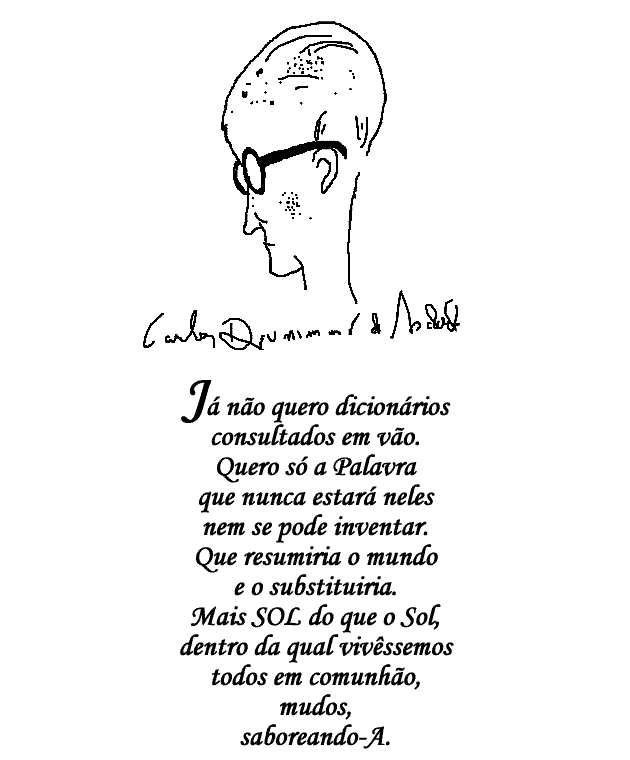 Carlos Drummond de Andrade
Já não quero dicionários
consultados em vão.
Quero só a Palavra
que nunca estará neles
nem se pode inventar.
Que resumiria o mundo
e o substituiria.
Mais SOL do que o Sol,
dentro da qual vivêssemos
todos em comunhão,
mudos,
saboreando-A.